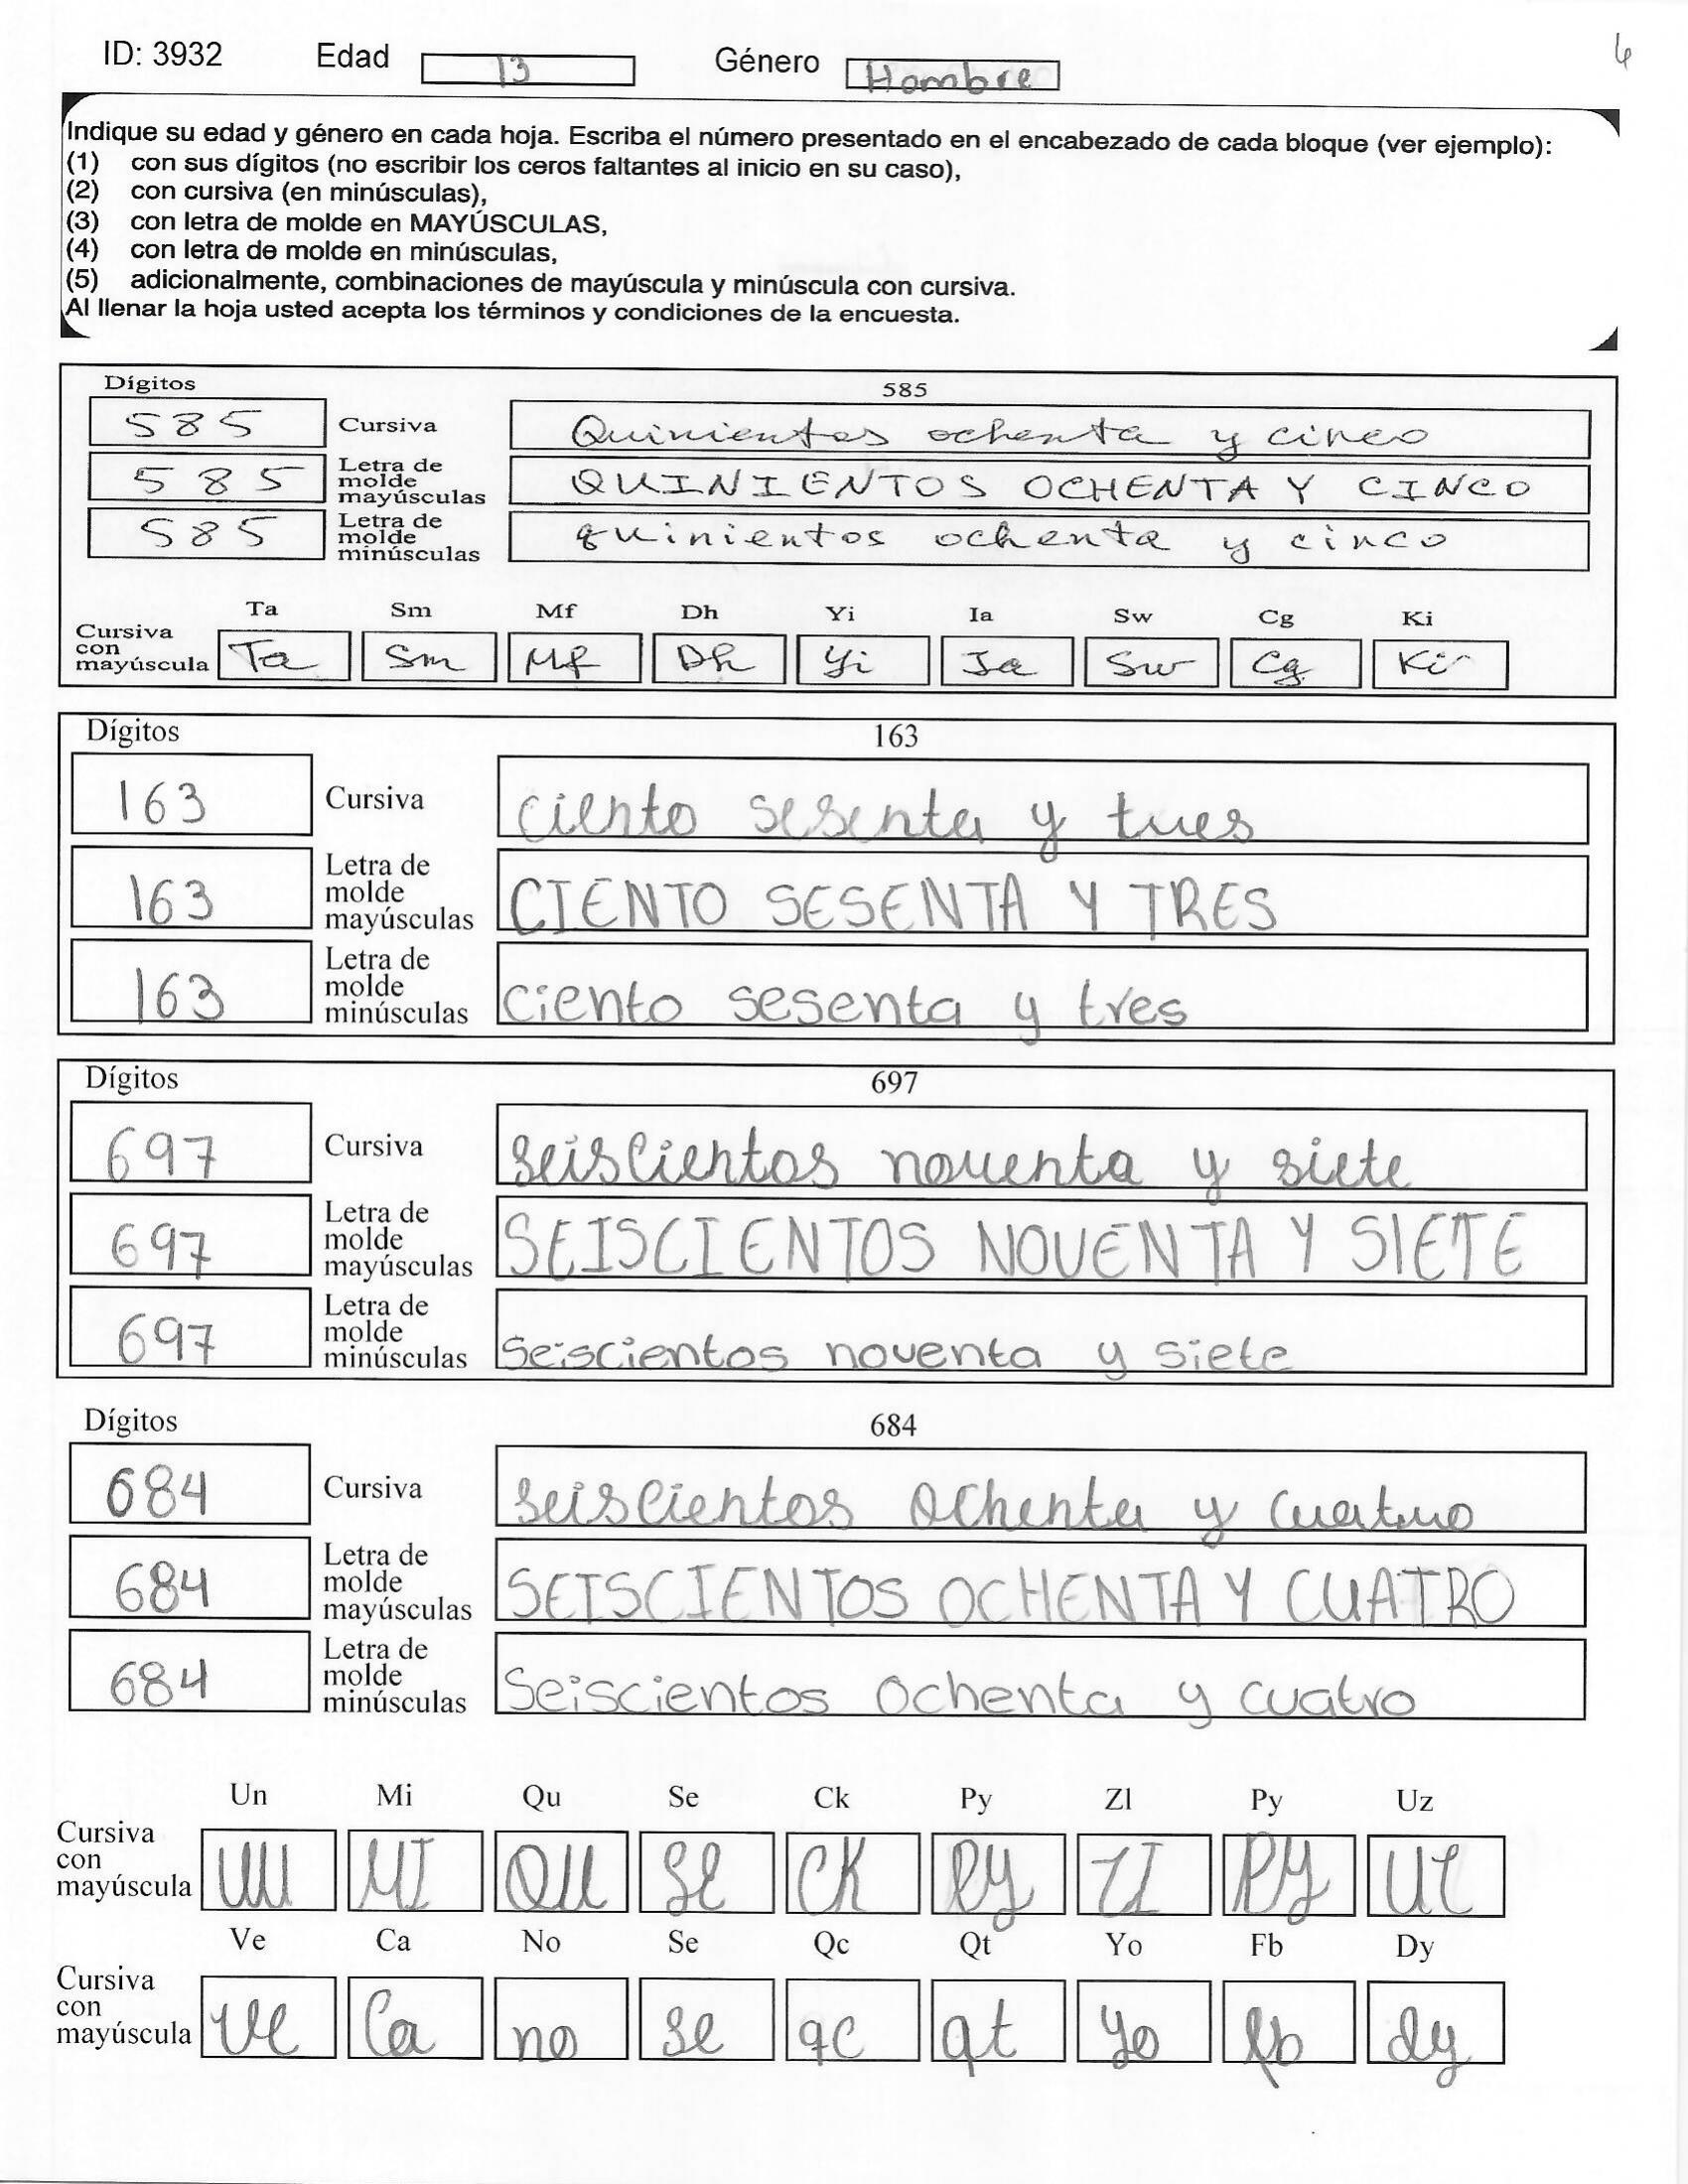 ID: 3932 Edad 13 Género Hombre
Indique su edad y género en cada hoja. Escriba el número presentado en el encabezado de cada bloque (ver ejemplo):
(1) con sus dígitos (no escribir los ceros faltantes al inicio en su caso),
(2) con cursiva (en minúsculas),
(3) con letra de molde en MAYÚSCULAS,
(4) con letra de molde en minúsculas,
(5) adicionalmente, combinaciones de mayúscula y minúscula con cursiva.
Al llenar la hoja usted acepta los términos y condiciones de la encuesta.
Dígitos 585
585 Cursiva Quinientos ochenta y cinco
585 Letra de molde mayúsculas QUINIENTOS OCHENTA Y CINCO
585 Letra de molde minúsculas quinientos ochenta y cinco
Ta Sm Mf Dh Yi Ia Sw Cg Ki
Cursiva con mayúscula Ta Sm Mf Dh Yi Ia Sw Cg Ki
Dígitos 163
163 Cursiva ciento sesenta y tres
163 Letra de molde mayúsculas CIENTO SESENTA Y TRES
163 Letra de molde minúsculas ciento sesenta y tres
Dígitos 697
697 Cursiva seiscientos noventa y siete
697 Letra de molde mayúsculas SEISCIENTOS NOVENTA Y SIETE
697 Letra de molde minúsculas seiscientos noventa y siete
Dígitos 684
684 Cursiva seiscientos ochenta y cuatro
684 Letra de molde mayúsculas SEISCIENTOS OCHENTA Y CUATRO
684 Letra de molde minúsculas Seiscientos ochenta y cuatro
Un Mi Qu Se Ck Py Zl Py Uz
Cursiva con mayúscula UU MI QU SE CK PY ZI PY UZ
Ve Ca No Se Qc Qt Yo Fb Dy
Cursiva con mayúscula ve Ca no se qc qt yo fb dy